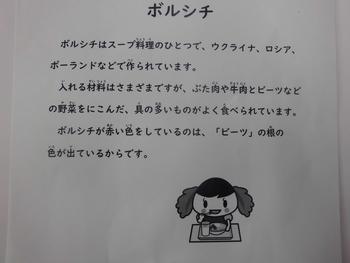 ボルシチ
ボルシチはスープ料理のひとつで、ウクライナ、ロシア、
ポーランドなどで作られています。
入れる材料はさまざまですが、ぶた肉や牛肉とビーツなど
の野菜をにこんだ、具の多いものがよく食べられています。
ボルシチが赤い色をしているのは、「ビーツ」の根の
色が出ているからです。